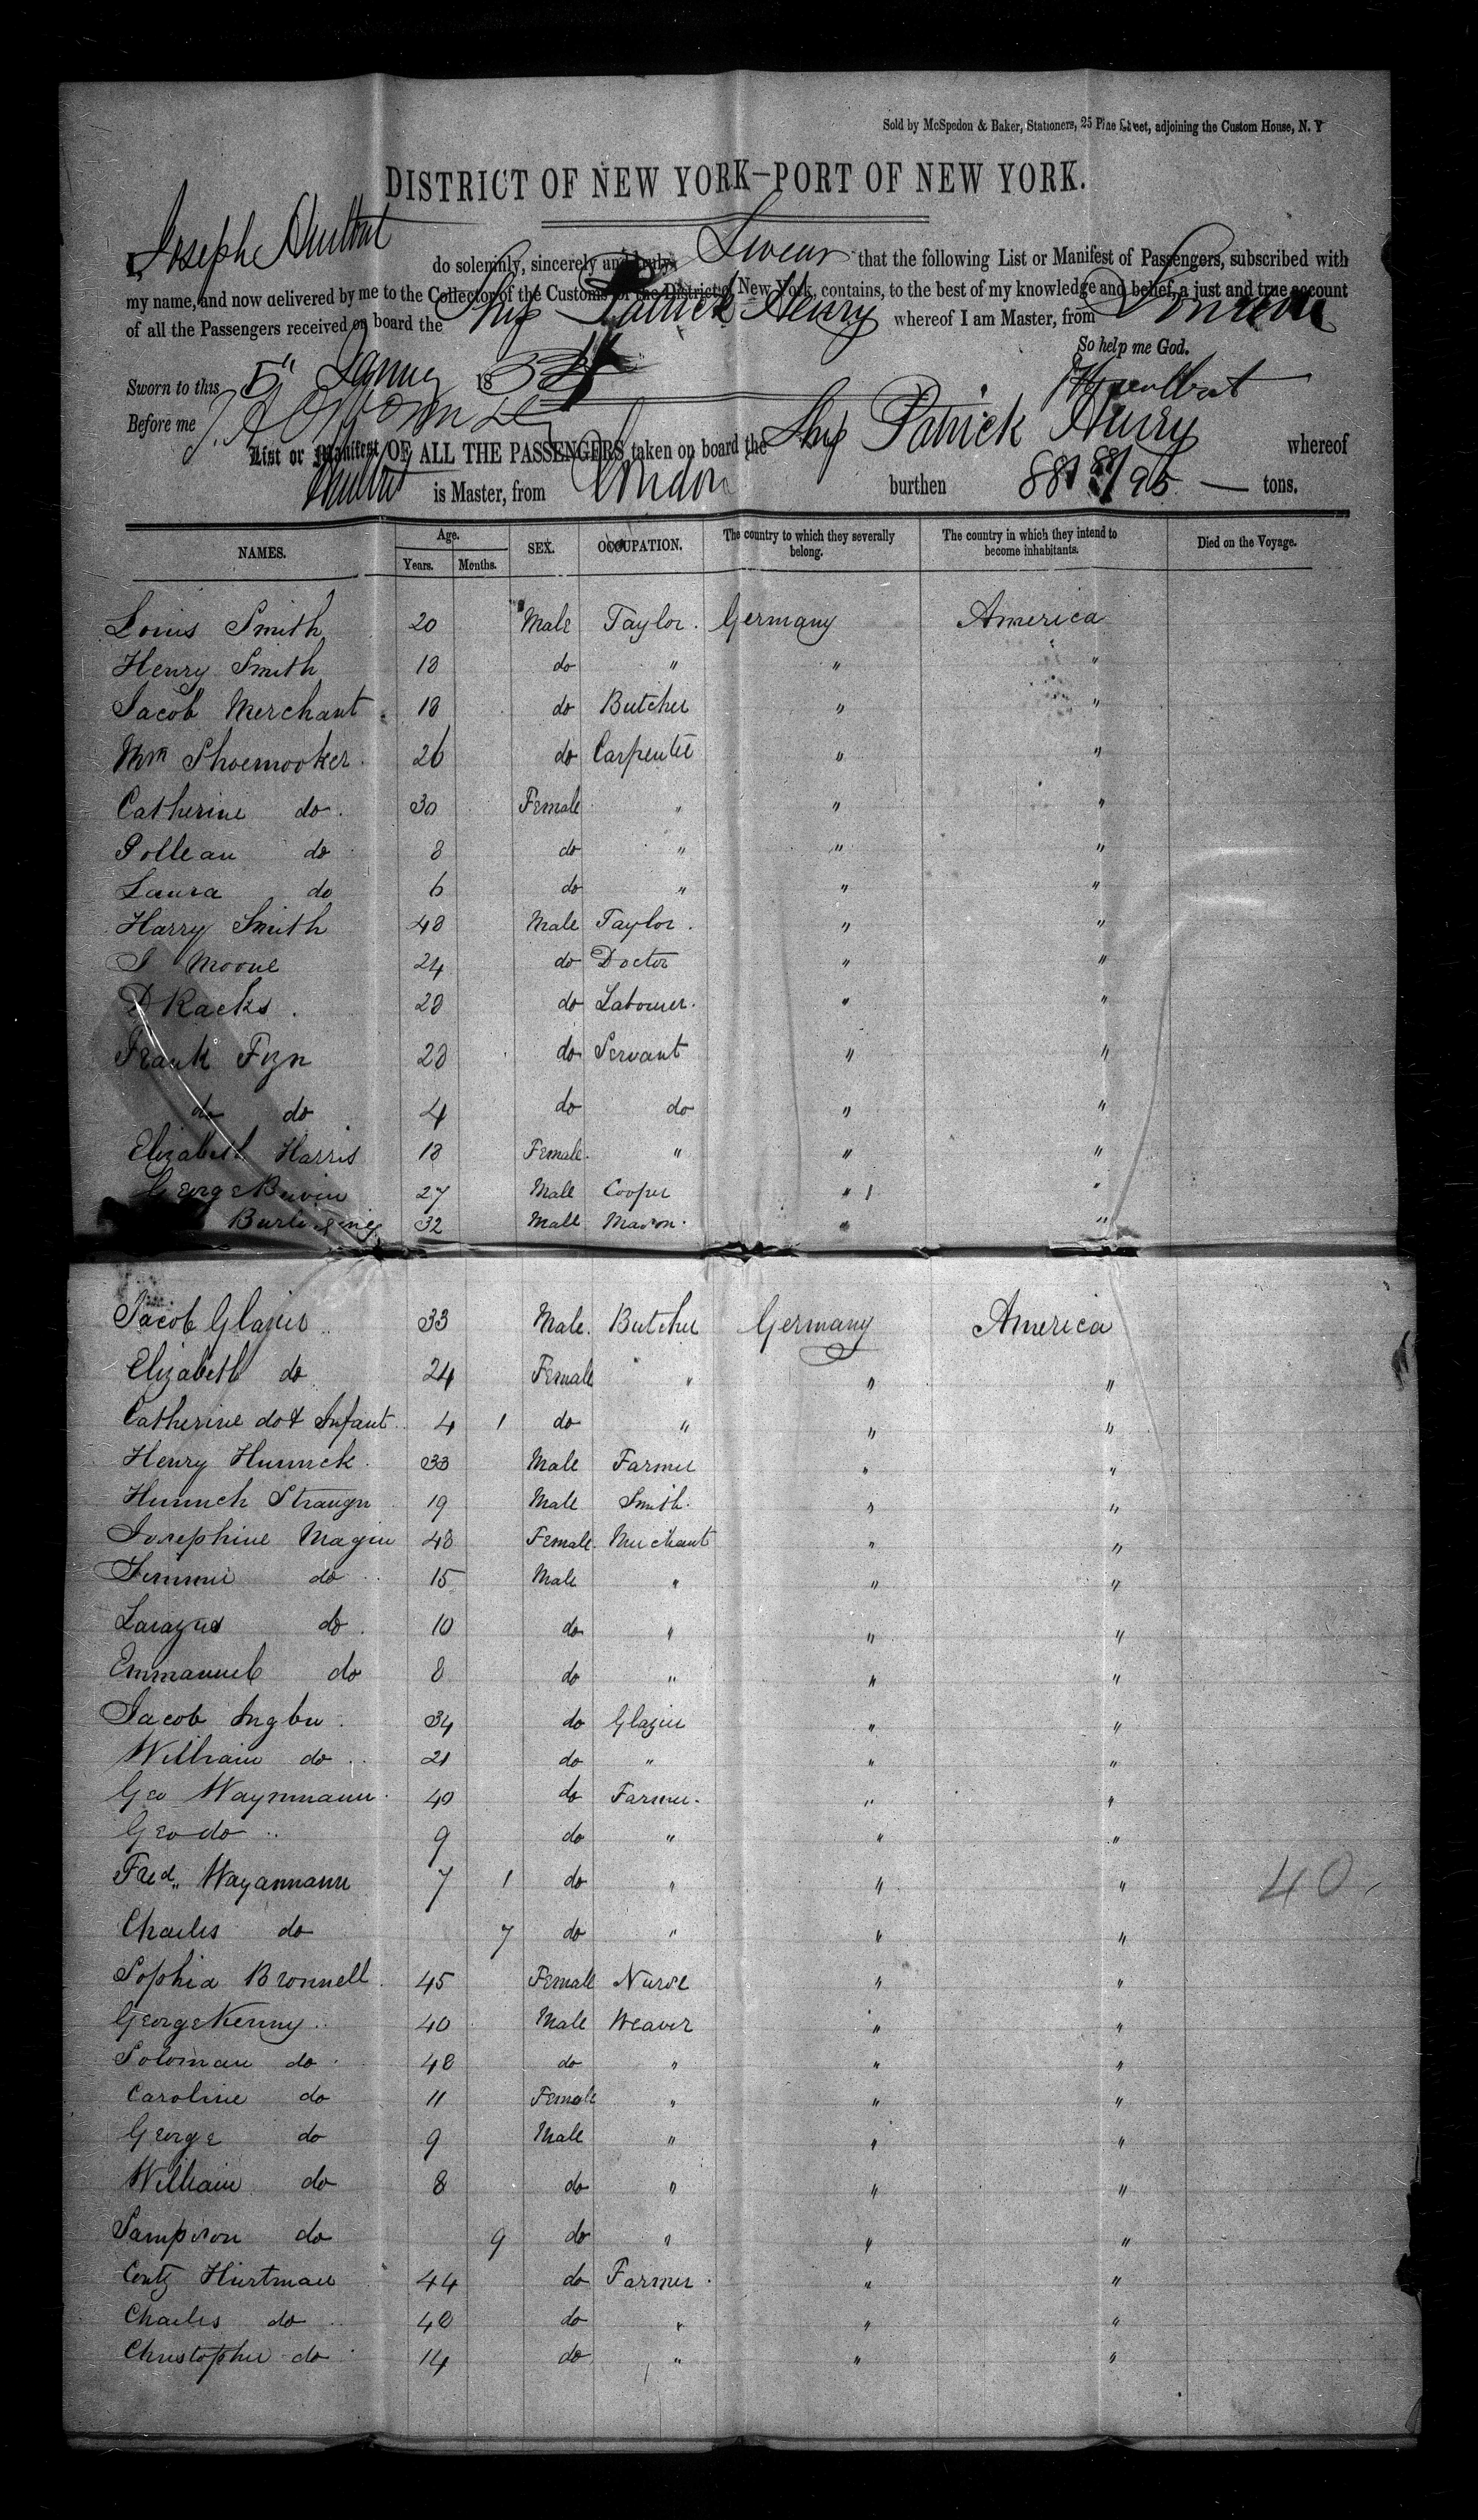 Sold by McSpedon & Baker, Stationers, 25 Pine Street, adjoining the Custom House, N. Y
DISTRICT OF NEW YORK—PORT OF NEW YORK.
I, Joseph Hurlbut do solemnly, sincerely and truly Swear that the following List or Manifest of Passengers, subscribed with
my name, and now delivered by me to the Collector of the Customs for the District of New York, contains, to the best of my knowledge and belief, a just and true account
of all the Passengers received on board the Ship Patrick Henry whereof I am Master, from London
So help me God.
Sworn to this 5" 18
Before me J Hurlbut
List or Manifest OF ALL THE PASSENGERS taken on board the Ship Patrick Henry whereof
Hurlbut is Master, from London burthen 88/95 — tons.
NAMES. Age. SEX. OCCUPATION. The country to which they severally belong. The country in which they intend to become inhabitants. Died on the Voyage.
Years. Months.
Louis Smith 20 Male Taylor. Germany America
Henry Smith 18 do " " "
Jacob Merchant 18 do Butcher " "
Wm Shoemooker 26 do Carpenter " "
Catherine do 30 Female " " "
do 8 do " " "
Laura do 6 do " " "
Harry Smith 48 Male Taylor. " "
J Moone 24 do Doctor " "
D Racks. 28 do Labourer. " "
Frank Fizn 28 do Servant " "
do do 4 do do " "
Elizabeth Harris 18 Female. " " "
George 27 Male Cooper " "
32 Male Mason. " "
Jacob Glazier 33 Male. Butcher Germany America
Elizabeth do 24 Female " " "
Catherine do & Infant 4 1 do " " "
Henry Hunnick 33 Male Farmer " "
Straugn 19 Male Smith. " "
Josephine Magin 48 Female. Merchant " "
do 15 Male " " "
Larazus do 10 do " " "
Emmanuel do 8 do " " "
Jacob Ingber 34 do Glazier " "
William do 21 do " " "
Geo Waynmann 40 do Farmer. " "
Geo do 9 do " " "
Fred,, Wayanmann 7 1 do " " "
Charles do 7 do " " "
40
Sophia Bronnell 45 Female Nurse " "
George Kenny 40 Male Weaver " "
Soloman do 48 do " " "
Caroline do 11 Female " " "
George do 9 Male " " "
William do 8 do " " "
Sampson do 9 do " " "
Contz Hurtman 44 do Farmer. " "
Charles do 40 do " " "
Christopher do 14 do " " "